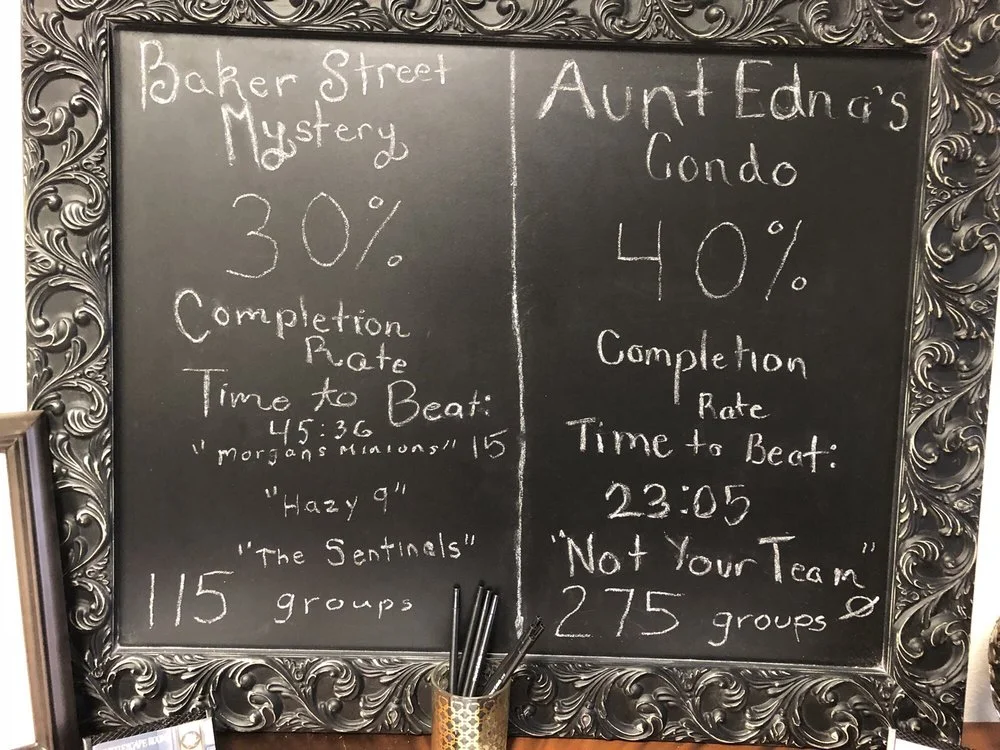 Baker Street
Mystery
30%
Completion
Rate
Time to Beat:
45:36
"Morgans Minions" 15
"Hazy 9"
"The Sentinels"
115 groups
Aunt Edna's
Condo
40%
Completion
Rate
Time to Beat:
23:05
"Not Your Team"
275 groups Ø